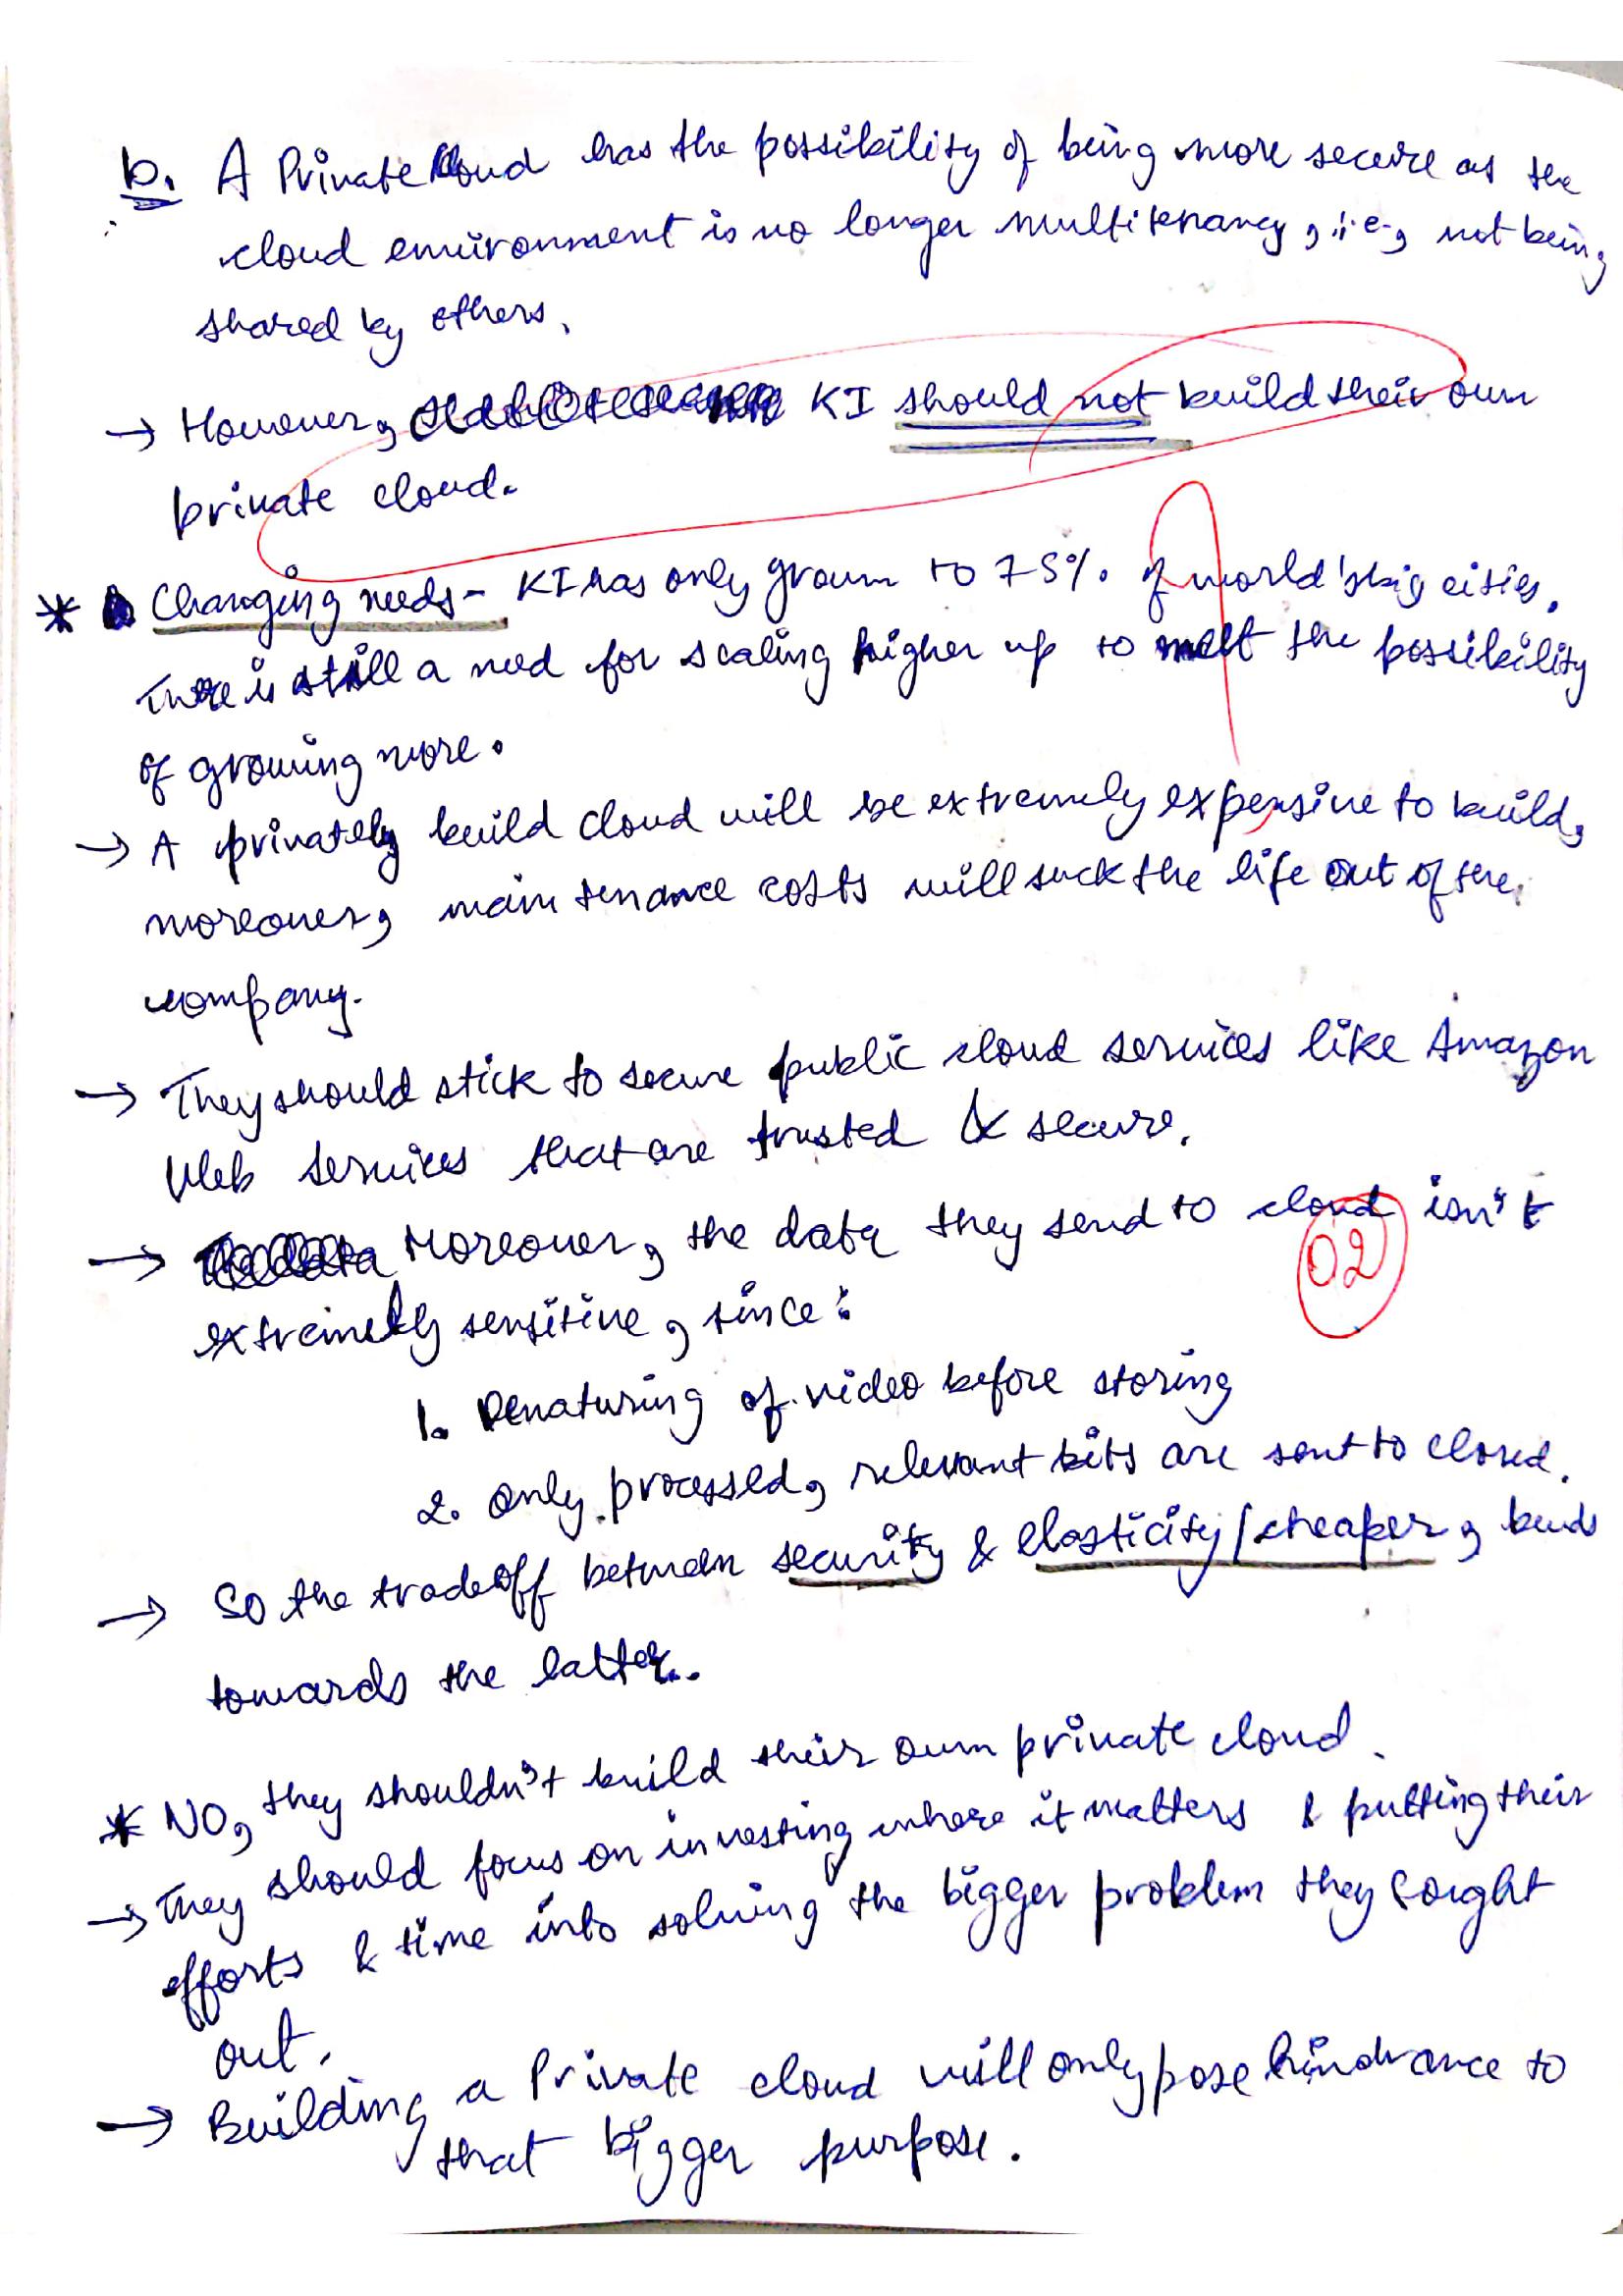 b. A Private Cloud has the possibility of being more secure as the
cloud environment is no longer multitenancy, i.e., not being
shared by others.
→ However, KI should not build their own
private cloud.
* Changing needs - KI has only grown to 75% of world's big cities.
There is still a need for scaling higher up to meet the possibility
of growing more.
→ A privately build cloud will be extremely expensive to build,
moreover, maintenance costs will suck the life out of the
company.
→ They should stick to secure public cloud services like Amazon
Web Services that are trusted & secure.
→ Moreover, the data they send to cloud isn't
02
extremely sensitive, since:
1. Denaturing of video before storing
2. Only processed, relevant bits are sent to cloud.
→ So the tradeoff between security & elasticity/cheaper, bends
towards the latter.
* NO, they shouldn't build their own private cloud.
→ They should focus on investing where it matters & putting their
efforts & time into solving the bigger problem they sought
out.
→ Building a Private cloud will only pose hindrance to
that bigger purpose.